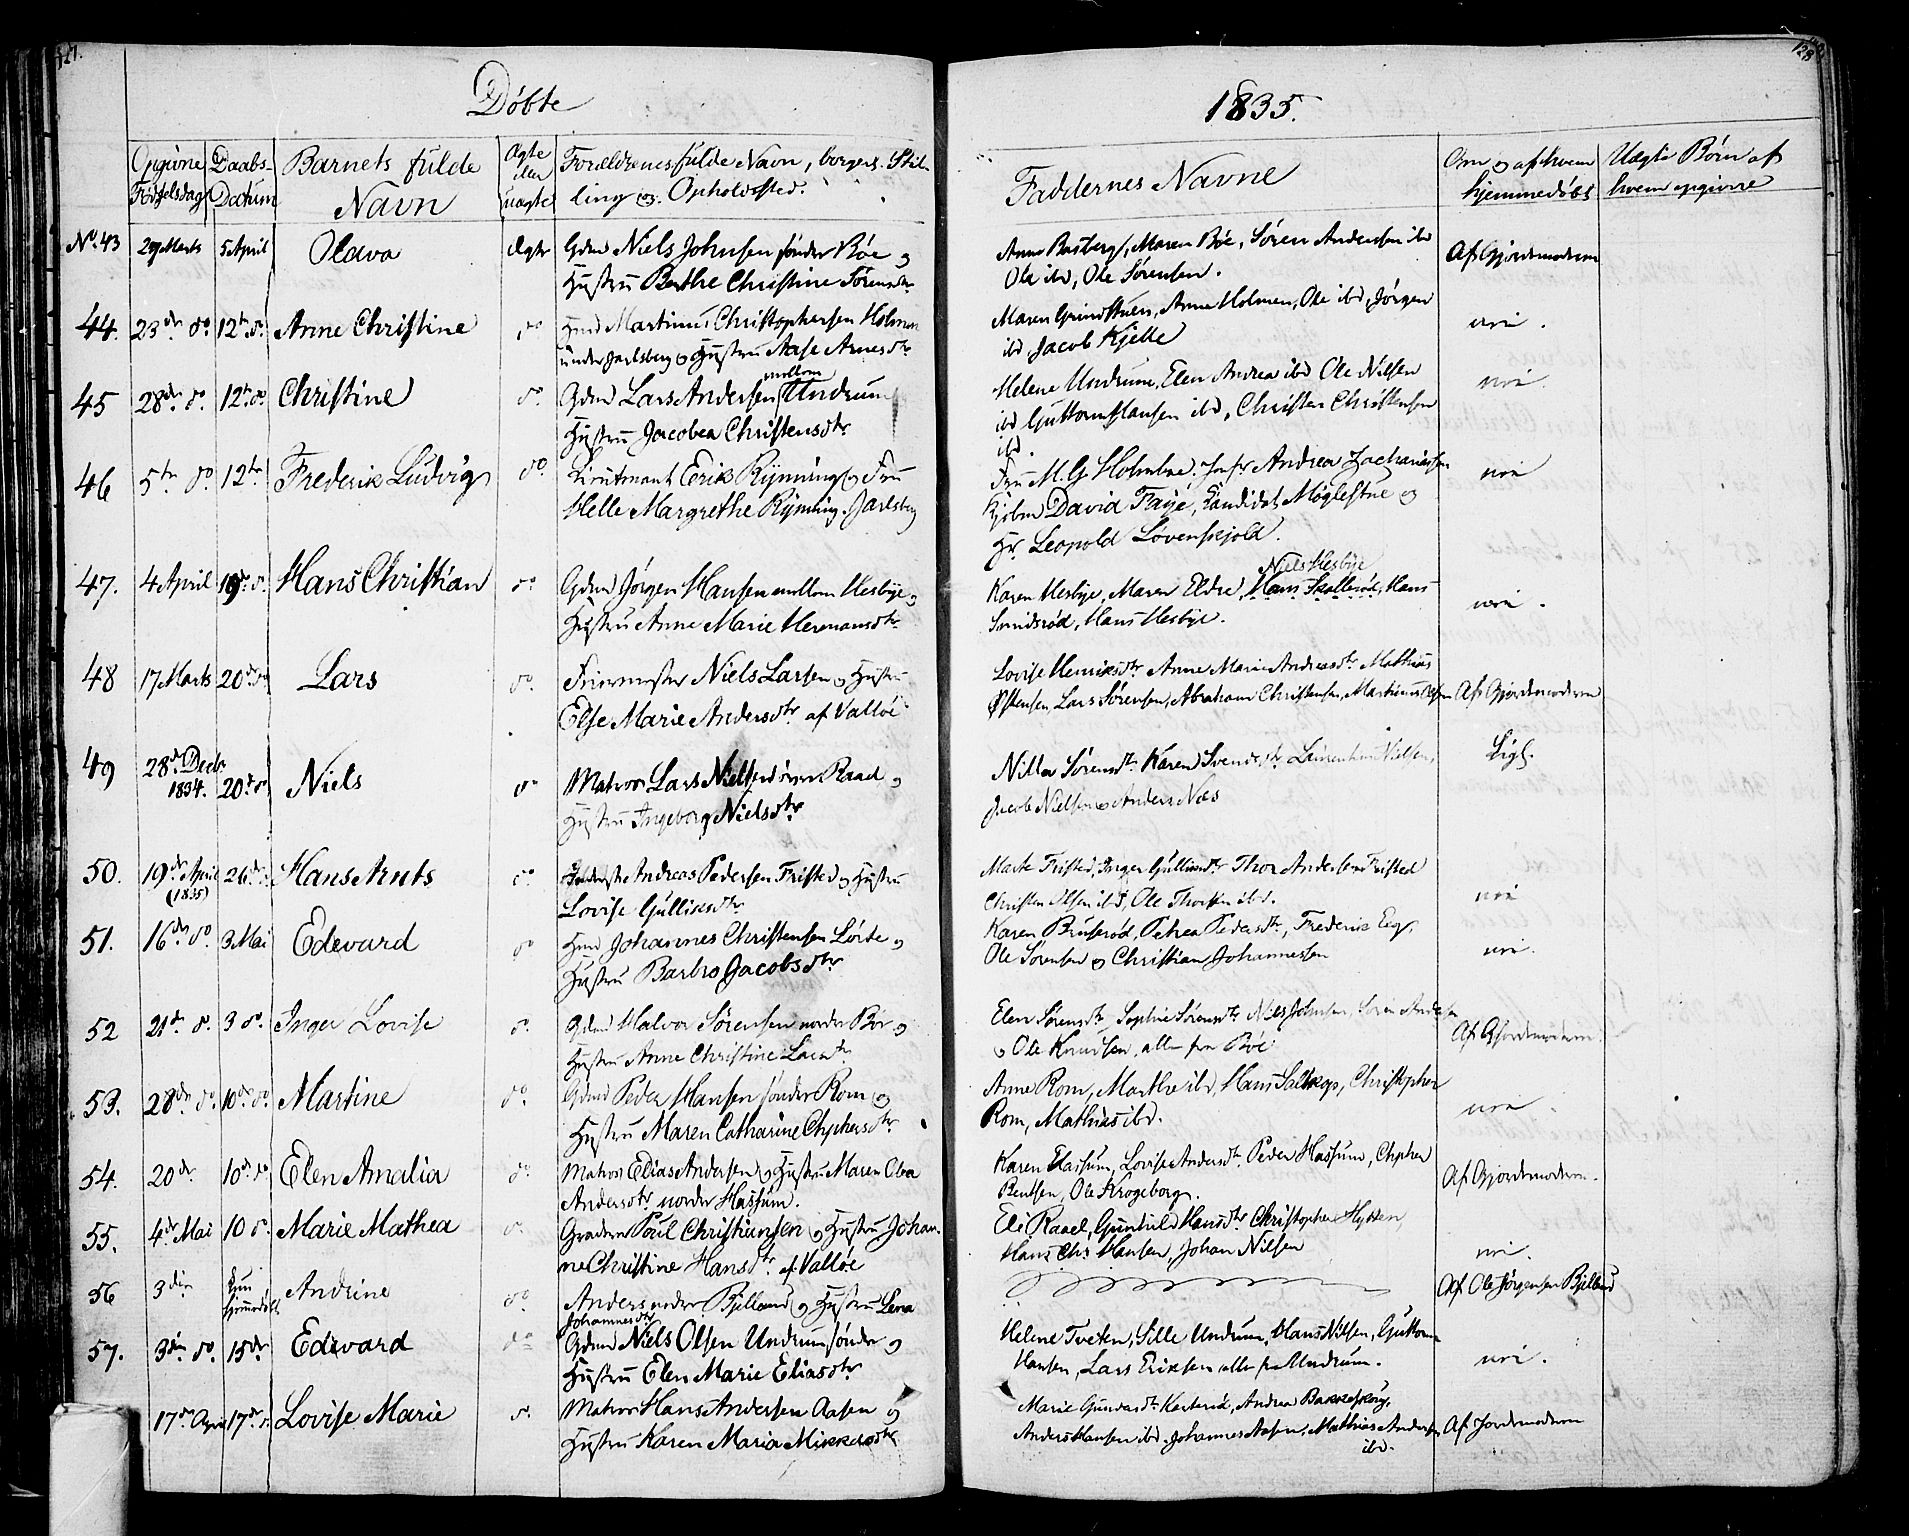 127.
128
Døbte
1835.
Opgivne Fødselsdag
Daabs-Datum
Barnets fulde Navn
Ægte eller uægte
Forældrenes fulde Navn, borgerl. Stilling og Opholdssted.
Faddernes Navne
Om og af hvem hjemmedøbt
Uægte Børn af hvem opgivne
No. 43 29 Marts 5 April Olava Ægte Gdmd Niels Johnsen søndre Bøe og
Hustru Berthe Christine Sørensdtr
Anne Basberg, Maren Bøe, Søren Andersen ibd
Ole ibd, Ole Sørensen.
Af Gjordemoderen
44. 23de do. 12te do. Anne Christine do Hmd Martinus Christophersen Holmen
under Jarlsberg og Hustru Aase Arnesdtr
Maren Grindstuen, Anne Holmen, Ole ibd, Jørgen
ibd Jacob Kjelle
nei.
45 28de do. 12te do. Christine do. Gdmd Lars Andersen mellom Undrum
Hustru Jacobea Christensdtr
Helene Undrum, Elen Andrea ibd Ole Nilsen
ibd Guttorm Hansen ibd, Christen Christensen
ibd.
nei.
46 5te do. 12te Frederik Ludvig do. Lieutnant Erik Rynning og Fru
Helle Margrethe Rynning. Jarlsberg
Fru M. G. Holmboe. Jmfr Andrea Zachariasen
Kjøbm David Faye, Kandidat Møglestue og
Hr. Leopold Løvenskjold.
nei
47. 4 April 19de do. Hans Christian do Gdmd Jørgen Hansen mellom Hesbye og
Hustru Anne Marie Hermansdtr
Niels Hesbye
Karen Hesbye, Maren Eldre, Hans Skallerød, Hans
Smidsrød, Hans Hesbye.
nei.
48 17 Marts 20de do Lars do. Niels Larsen og Hustru
Else Marie Andersdtr af Valløe
Lovise Henriksdtr Anne Marie Andreasdtr Mathias
Østensen, Lars Sørensen, Abraham Christensen, Martinus Olsen
Af Gjordemoderen
49 28de Decbr 1834. 20de do Niels do Matros Lars Nielsen øvre Raael og
Hustru Ingeborg Nielsdtr
Nilla Sørensdtr Karen Svendsdtr Nielsen,
Jacob Nielsen og Anders Næs
Ligl.
50. 19de April (1835) 26de Hans Anuts do. Andreas Pedersen Fristed og Hustru
Lovise Gulliksdtr
Marte Fristed, Inger Gulliksdtr Thor Andersen Fristed
Christen Olsen ibd, Ole ibd.
nei
51. 16de do. 3 Mai Edevard do Hmd Johannes Christensen Lørte og
Hustru Barbro Jacobsdtr
Karen Brusrød, Petrea Pedersdtr, Frederik Eeg,
Ole Sørensen og Christian Johannessen
nei.
52 21de do. 3 do. Inger Lovise do. Gdmd Halvor Sørensen nordre Bøe og
Hustru Anne Christine Larsdtr
Elen Sørensdtr Sophie Sørensdtr Niels Johnsen, Søren Andersen
og Ole Knudsen, alle fra Bøe
Af Gjordemoderen.
53. 28de do. 10de do. Martine do. Gdmd Peder Hansen søndre Rom og
Hustru Maren Catharine Chphersdtr
Anne Rom, Marthe ibd, Hans Saltkop, Christopher
Rom, Mathias ibd.
nei.
54. 20de 10de do Elen Amalia do. Matros Elias Andersen og Hustru Maren Olea
Andersdtr nordre Hassum.
Karen Hassum, Lovise Andersdtr. Peder Hassum, Chpher
Bentsen, Ole Krogeborg.
Af Gjordemoderen.
55. 4de Mai 10 do. Marie Mathea do. Poul Christiansen og Hustru Johan-
ne Christine Hansdtr. af Valløe
Eli Raael, Gunhild Hansdtr Christopher Hytten,
Hans Chr Hansen, Johan Nilsen
nei.
56 3die Kun hjemmedøbt Andrine do Anders nedre Bjelland og Hustru Lena
Johannesdtr
Af Ole Jørgensen Bjelland
57. 3die do. 15de Edevard do Gdmd Niels Olsen Undrum søndre og
Hustru Elen Marie Eliasdtr
Helene Tveten, Sille Undrum, Hans Nilsen, Guttorm
Hansen, Lars Eriksen alle fra Undrum.
nei.
17de April 17de do. Lovise Marie do. Matros Hans Andersen Aasen og
Hustru Karen Maria Mikkelsdtr
Marie Gunvasdtr Andrea Bakkeskoug,
Anders Hansen ibd. Johannes Aasen, Mathias Andersen
ibd.
Af Jordemoderen